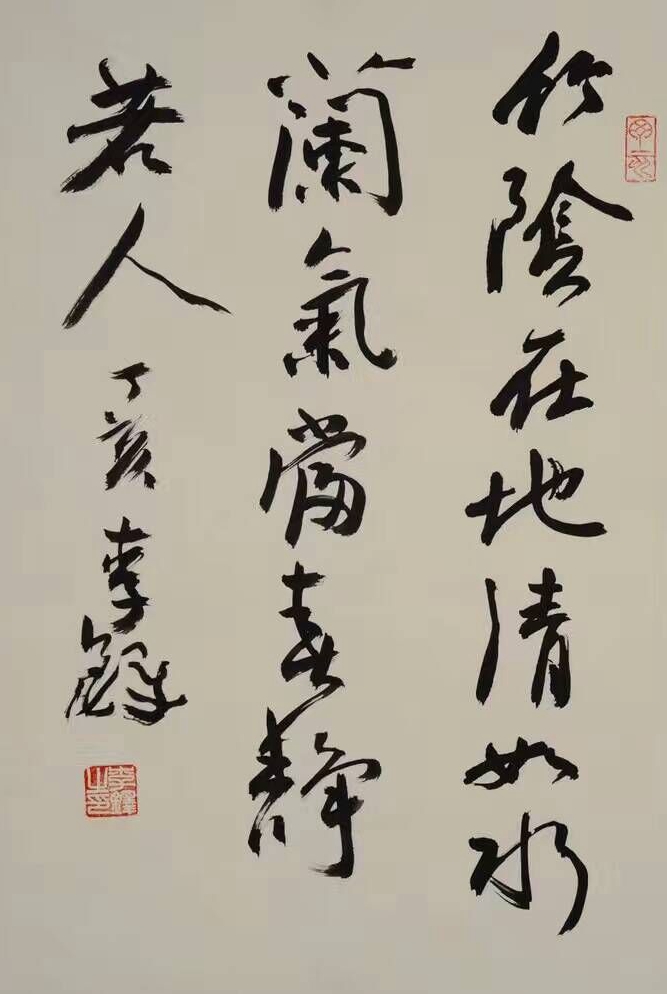 竹陰在地清如水
蘭氣當春靜
若人
丁亥李鐸
李鐸之印